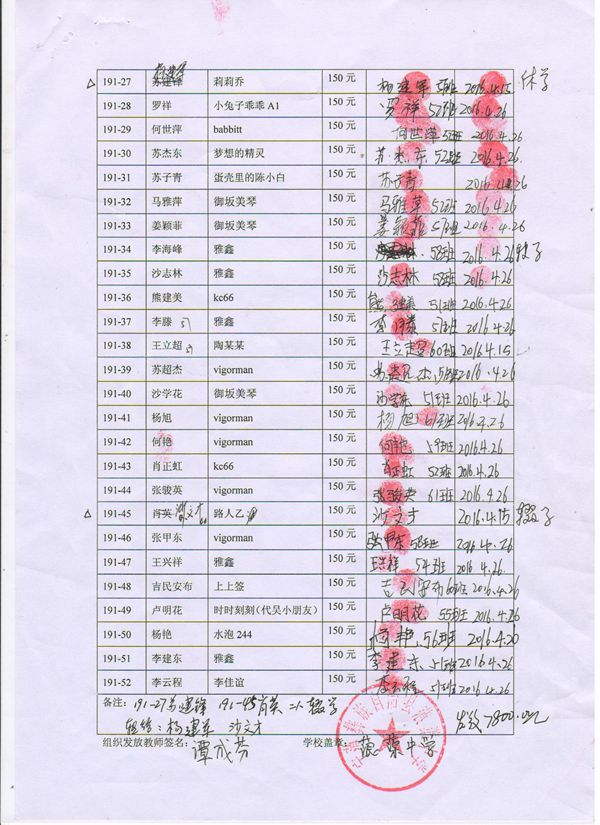 191-27 苏建锋 杨建军 莉莉乔 150 元 杨建军 2016.4.15 休学
191-28 罗祥 小兔子乖乖 A1 150 元 罗祥 52班 2016.4.26
191-29 何世萍 babbitt 150 元 何世萍 52班 2016.4.26
191-30 苏杰东 梦想的精灵 150 元 苏杰东 52班 2016.4.26
191-31 苏子青 蛋壳里的陈小白 150 元 苏子青 2016.4.26
191-32 马雅萍 御坂美琴 150 元 马雅萍 52班 2016.4.26
191-33 姜颖菲 御坂美琴 150 元 姜颖菲 2016.4.26
191-34 李海峰 雅鑫 150 元 58班 2016.4.26
191-35 沙志林 雅鑫 150 元 沙志林 58班 2016.4.26
191-36 熊建美 kc66 150 元 熊建美 51班 2016.4.26
191-37 李滕 雅鑫 150 元 51班 2016.4.26
191-38 王立超 陶某某 150 元 王立超 60班 2016.4.15
191-39 苏超杰 vigorman 150 元 苏超杰 2016.4.26
191-40 沙学花 御坂美琴 150 元 沙学花 51班 2016.4.26
191-41 杨旭 vigorman 150 元 杨旭 61班 2016.4.26
191-42 何艳 vigorman 150 元 何艳 59班 2016.4.26
191-43 肖正虹 kc66 150 元 肖正虹 52班 2016.4.26
191-44 张骏英 vigorman 150 元 张骏英 61班 2016.4.26
191-45 肖英 沙文才 路人乙 150 元 沙文才 2016.4.15 辍学
191-46 张甲东 vigorman 150 元 张甲东 58班 2016.4.26
191-47 王兴祥 雅鑫 150 元 54班 2016.4.26
191-48 吉民安布 上上签 150 元 吉民安布 60班 2016.4.26
191-49 卢明花 时时刻刻（代吴小朋友） 150 元 卢明花 55班 2016.4.26
191-50 杨艳 水泡 244 150 元 56班 2016.4.20
191-51 李建东 雅鑫 150 元 李建东 51班 2016.4.26
191-52 李云程 李佳谊 150 元 李云程 51班 2016.4.26
备注： 191-27苏建锋 191-45肖英 二人辍学 发放7800.00元
转给：杨建军 沙文才
组织发放教师签名： 谭成芬 学校盖章： 中学